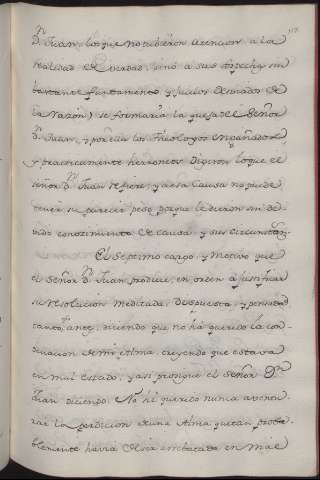 Dⁿ Juan, los que no tubieron atencion a la
realidad de verdad, sino a sus
bastante fundamento, y juicios de
la Razon) se formaria la quexa de el Señor
Dⁿ Juan, y por ella los Theologos engañados
y practicamente herroneos Digeron lo que el
señor Dⁿ Juan refiere; y a esa Causa no puede
tener su parecer peso porque le dieron sin de-
vido conocimiento de Causa, y sus circunstan.
El septimo cargo, y Motivo que
el Señor Dⁿ Juan produce, en orden a justificar
su resolucion meditada, dispuesta, y pensada
tanto antes, diciendo que no ha querido la con-
denacion de mi Alma, creyendo que estava
en mal estado; y asi prosigue el Señor Dⁿ
Juan diciendo: No hé querido nunca aventu-
rar la perdicion de una Alma que tan proba-
blemente havia de ser arrebatada en mal